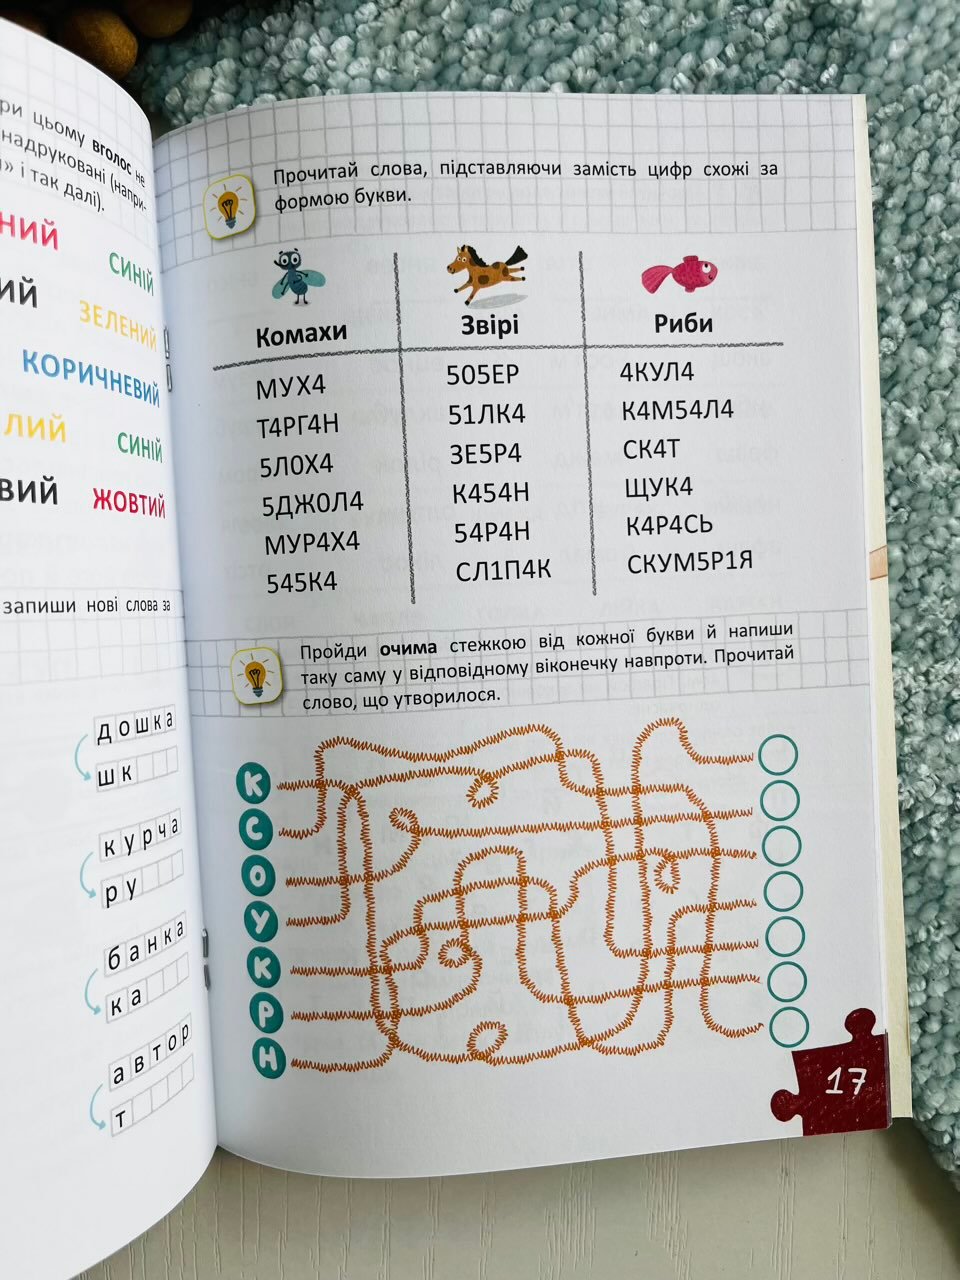 ри цьому вголос не
надруковані (напри-
» і так далі).
НИЙ СИНІЙ
ИЙ ЗЕЛЕНИЙ
КОРИЧНЕВИЙ
ЛИЙ СИНІЙ
ВИЙ ЖОВТИЙ
запиши нові слова за
дошка
шк
курча
ру
банка
ка
автор
т
Прочитай слова, підставляючи замість цифр схожі за
формою букви.
Комахи Звірі Риби
МУХ4 505ЕР 4КУЛ4
Т4РГ4Н 51ЛК4 К4М54Л4
5Л0Х4 ЗЕ5Р4 СК4Т
5ДЖ0Л4 К454Н ЩУК4
МУР4Х4 54Р4Н К4Р4СЬ
545К4 СЛ1П4К СКУМ5Р1Я
Пройди очима стежкою від кожної букви й напиши
таку саму у відповідному віконечку навпроти. Прочитай
слово, що утворилося.
К
С
О
У
К
Р
Н
17